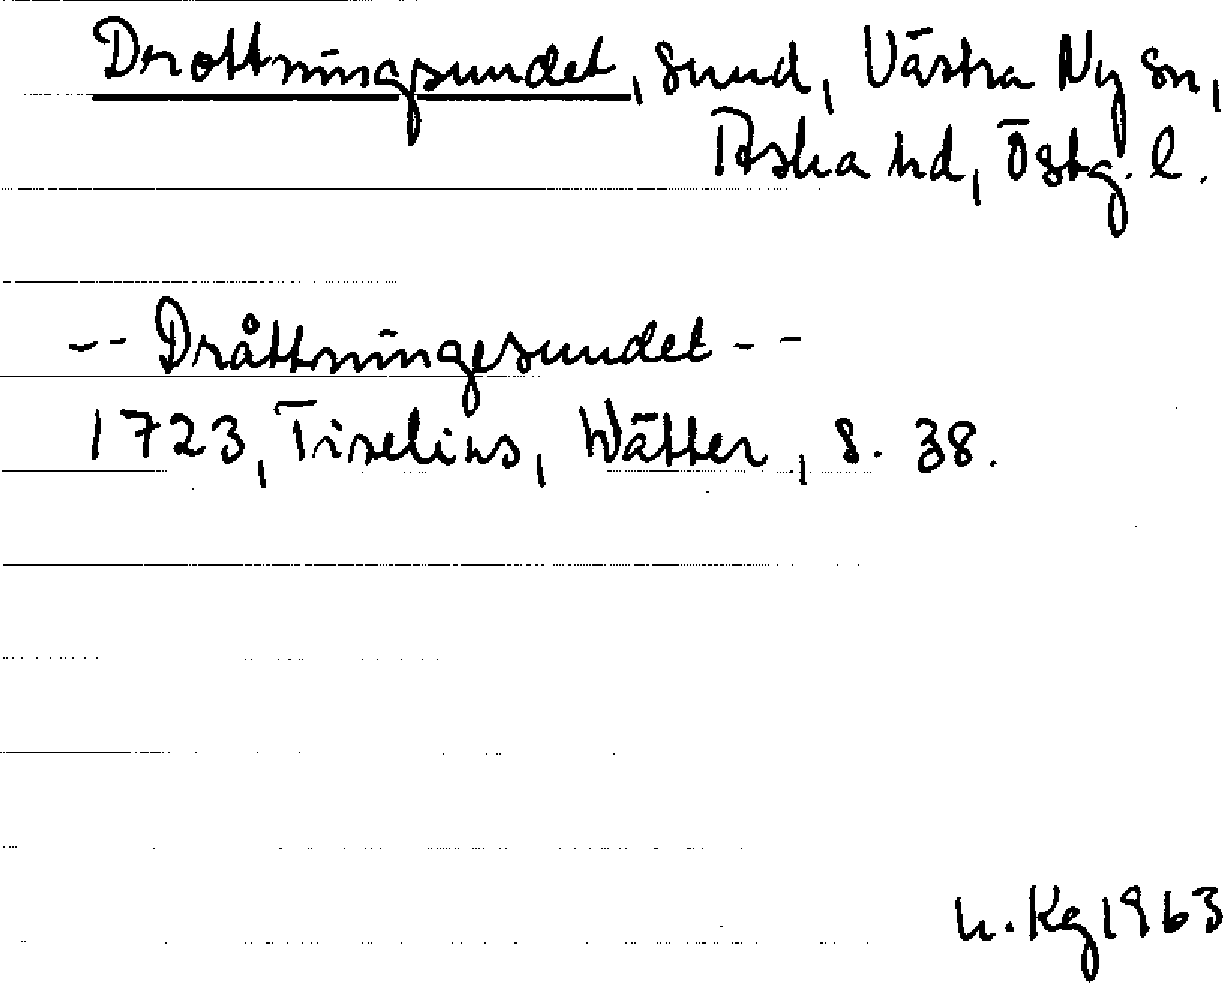 Drottningsundet, sund, Västra Ny sn,
Aska hd, Östg. l.
-- Dråttningesundet --
1723, Tiselius, Wätter, s. 38.
h. Kg 1963